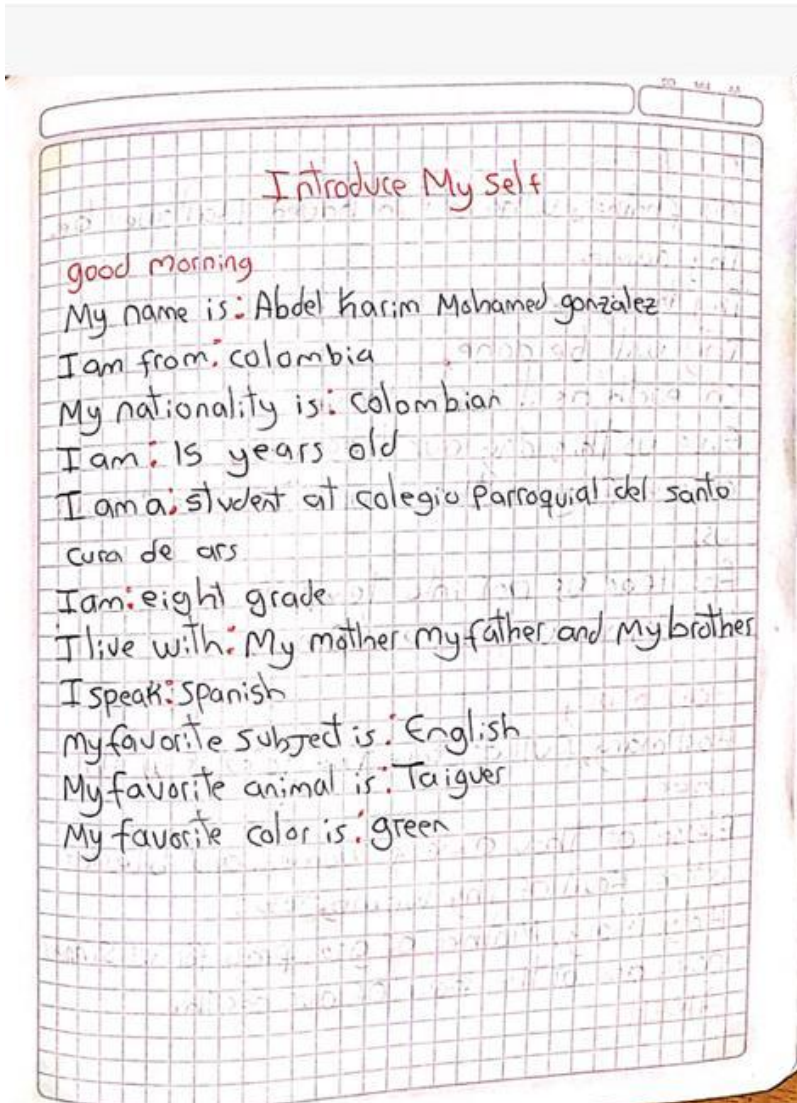 Introduce My self
good morning
My name is: Abdel Karim Mohamed gonzalez
I am from: colombia
My nationality is: colombian
I am: 15 years old
I am a: student at colegio Parroquial del santo
cura de ars
I am: eight grade
I live with: My mother my father and My brother
I speak: Spanish
My favorite subject is: English
My favorite animal is: Taiguer
My favorite color is: green